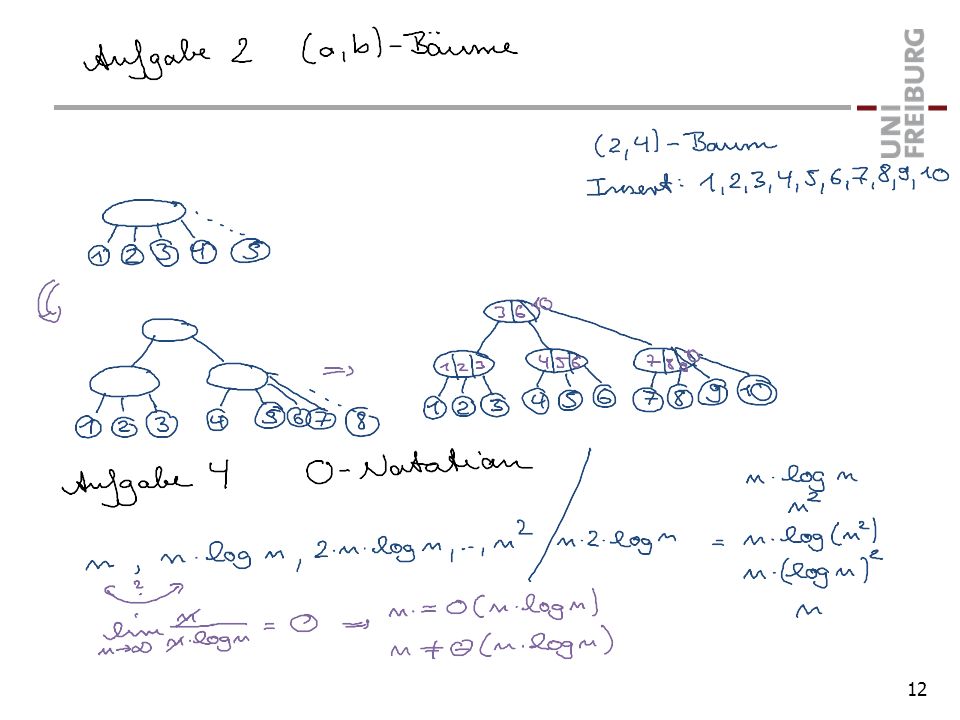 Aufgabe 2 (a,b)-Bäume
UNI
FREIBURG
(2,4)-Baum
Insert: 1,2,3,4,5,6,7,8,9,10
1 2 3 4 5
3 6 10
1 2 3 4 5 6 7 8
1 2 3 4 5 6 7 8 9 10
1 2 3 4 5 6 7 8
=>
Aufgabe 4 O-Notation
n, n·log n, 2·n·log n, .., n² / n·2·log n = n·log(n²)
n·log n
n²
n·(log n)²
n
?
lim n→∞ n / n·log n = 0 => n = O(n·log n)
n ≠ Θ(n·log n)
12